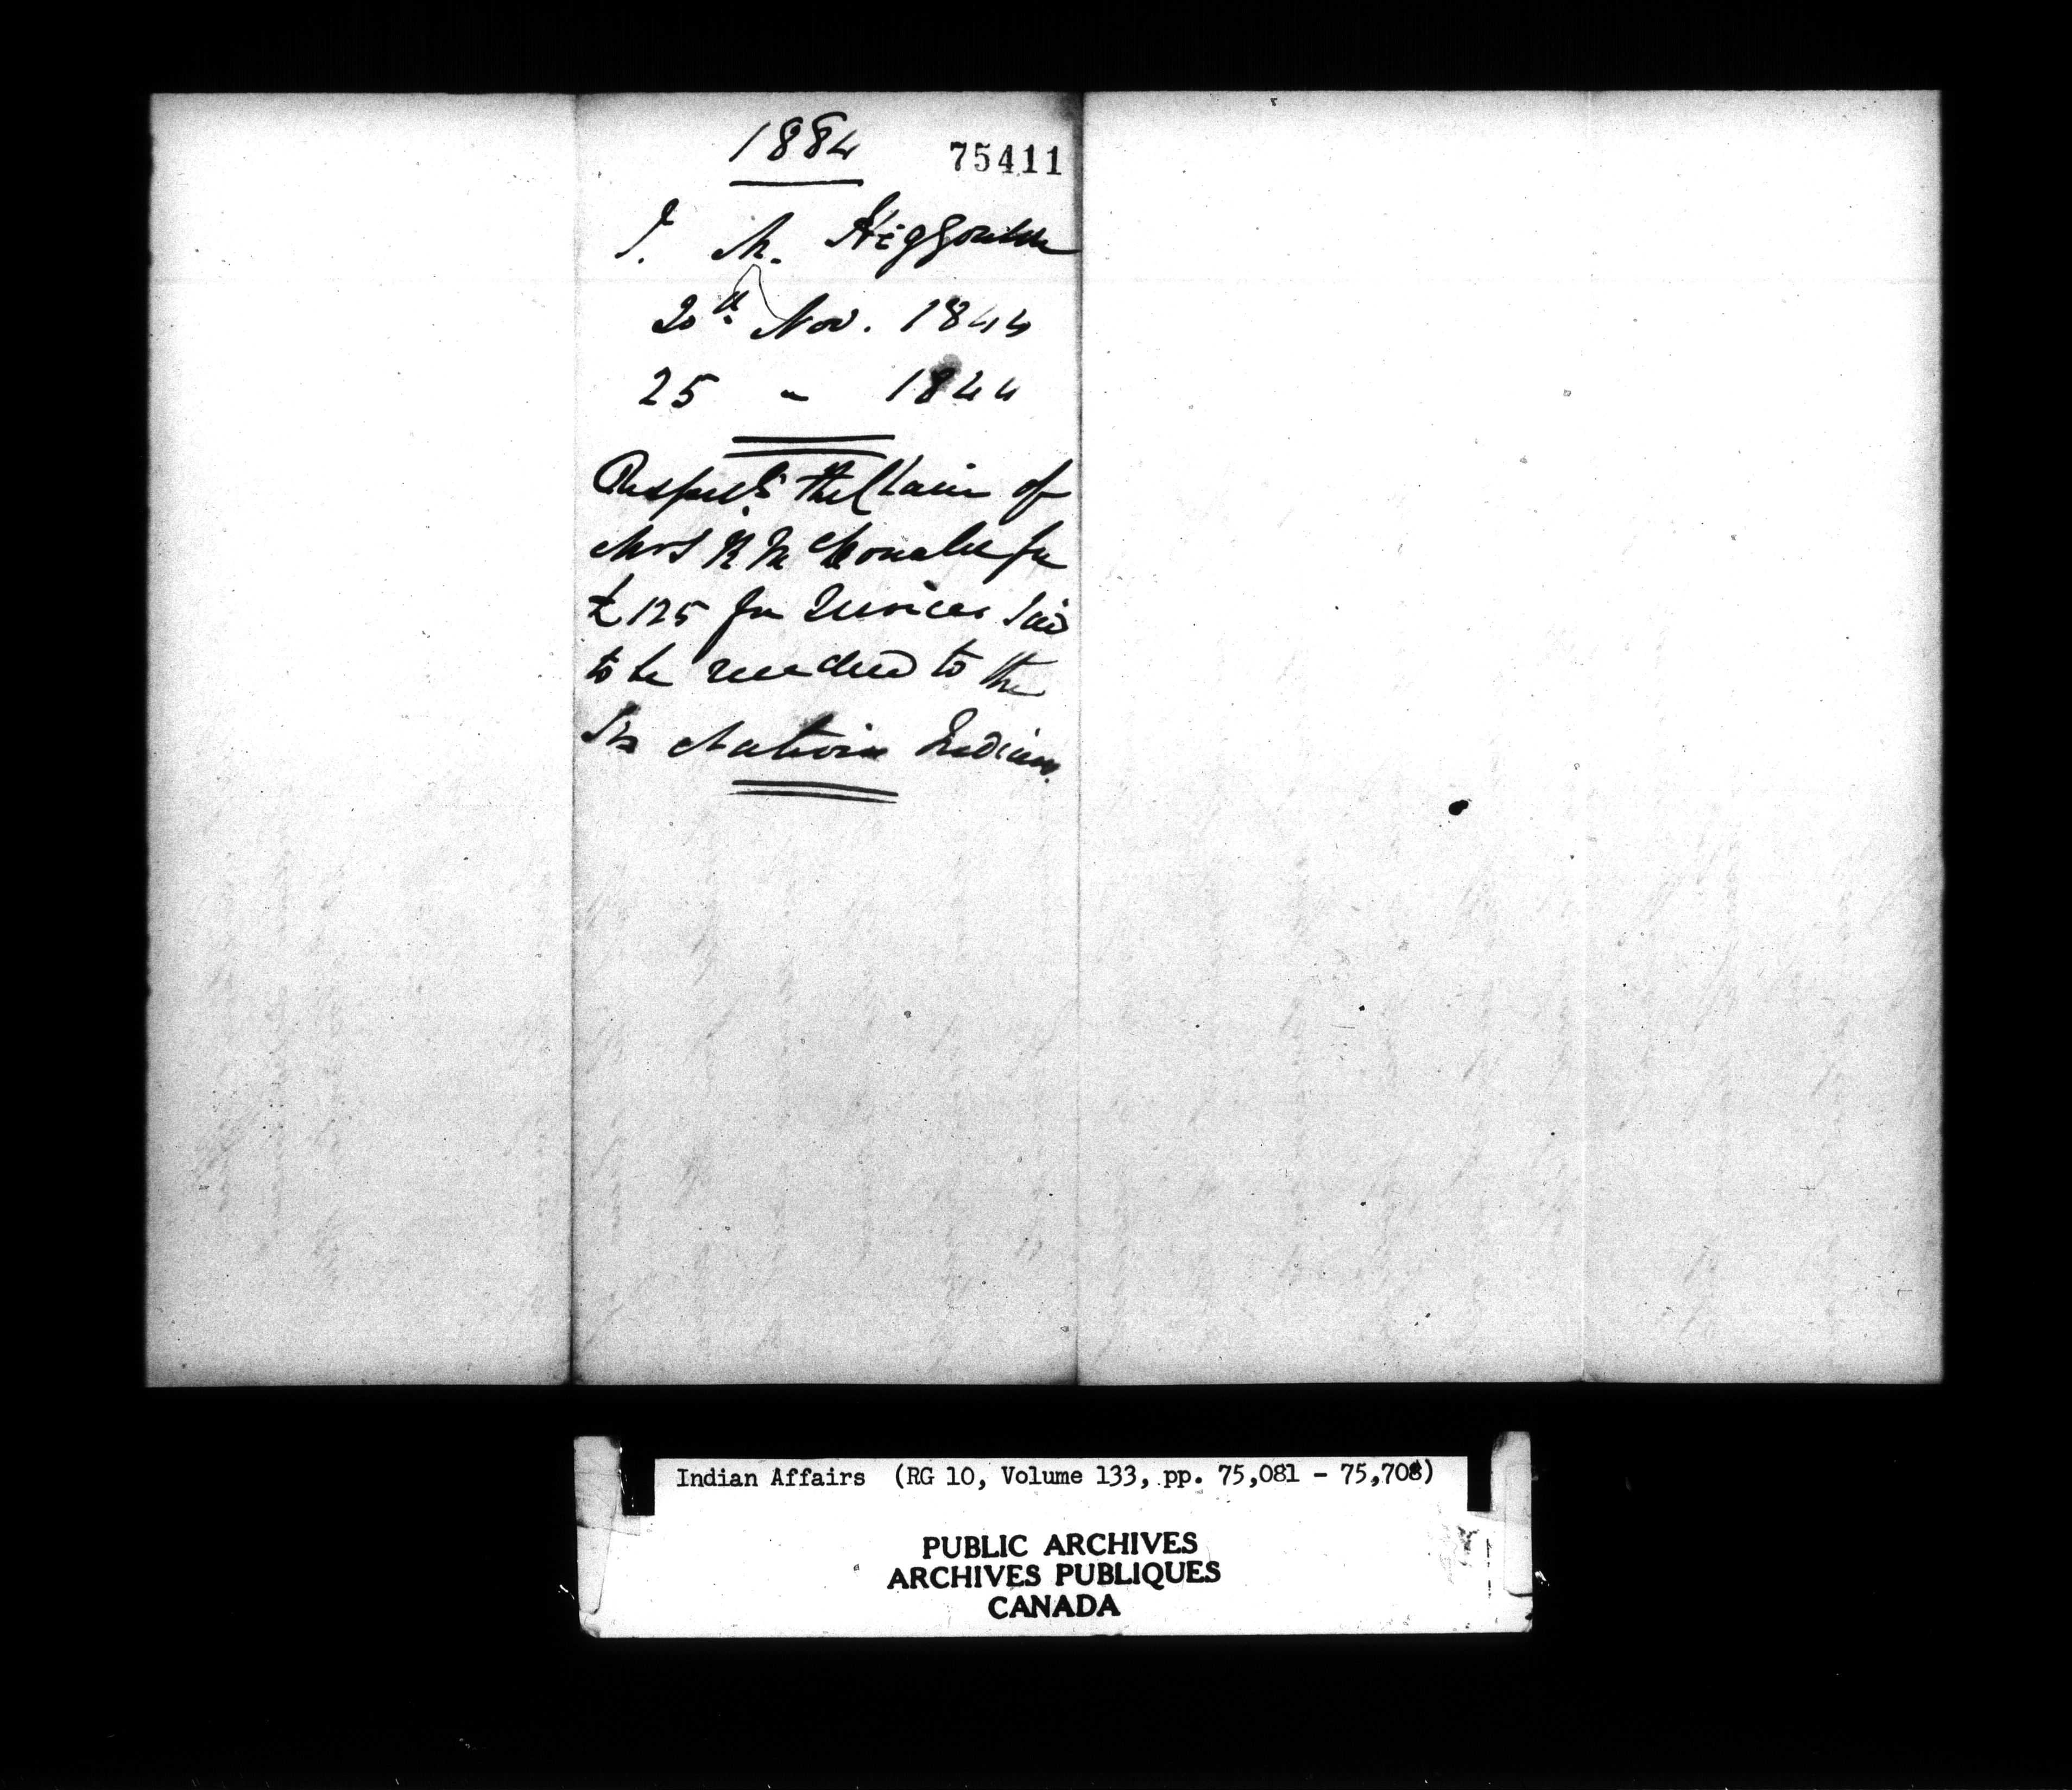 1884
75411
J. M. Higginson
20th Nov. 1844
25 " 1844
Respectg the Claim of
Mrs Mc Donald for
£125 for Services said
to be rendered to the
Six Nations Indians.
Indian Affairs (RG 10, Volume 133, pp. 75,081 - 75,708)
PUBLIC ARCHIVES
ARCHIVES PUBLIQUES
CANADA